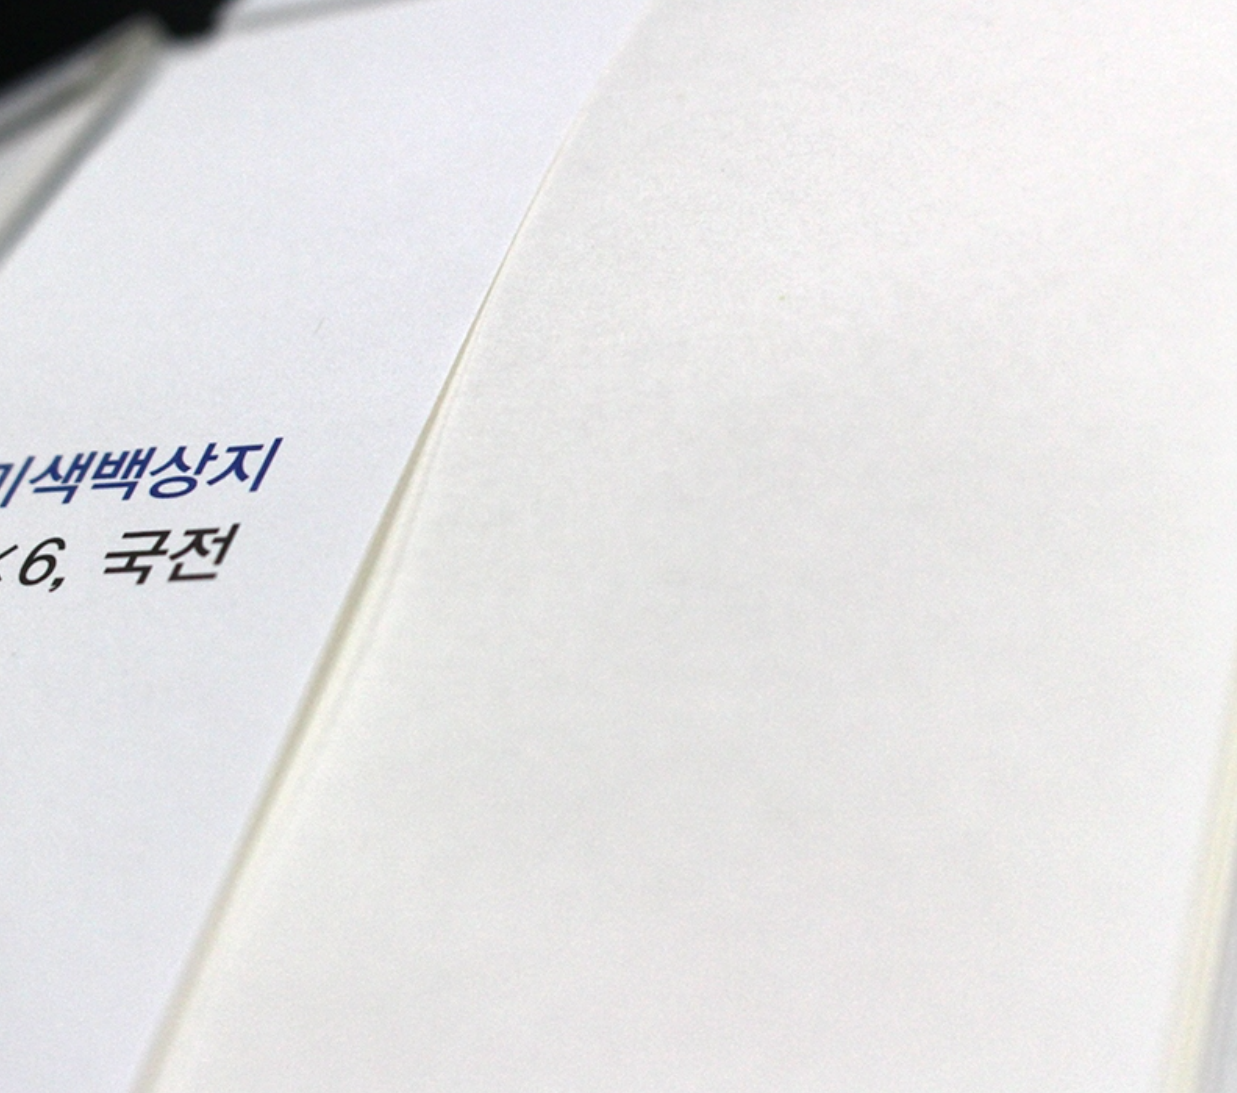 미색백상지
×6, 국전